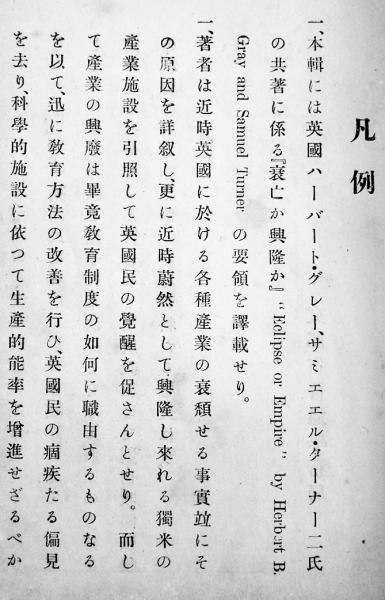 凡例
一、本輯には英國ハーバート・グレー、サミエエル・ターナー二氏
の共著に係る『衰亡か興隆か』“Eclipse or Empire” by Herbert B.
Gray and Samuel Turner の要領を譯載せり。
一、著者は近時英國に於ける各種產業の衰頽せる事實竝にそ
の原因を詳叙し、更に近時蔚然として興隆し來れる獨米の
產業施設を引照して英國民の覺醒を促さんとせり。而し
て產業の興廢は畢竟敎育制度の如何に職由するものなる
を以て、迅に敎育方法の改善を行ひ、英國民の痼疾たる偏見
を去り、科學的施設に依つて生產的能率を增進せざるべか